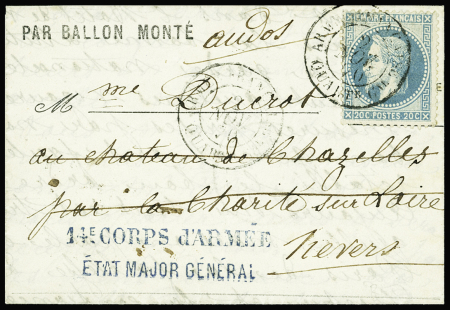 PAR BALLON MONTÉ
audos
EMPIRE FRANÇAIS
20C POSTES 20C
Mme Ducrot
au chateau de Chazelles
par la Charité sur Loire
Nevers
14E CORPS d'ARMÉE
ÉTAT MAJOR GÉNÉRAL